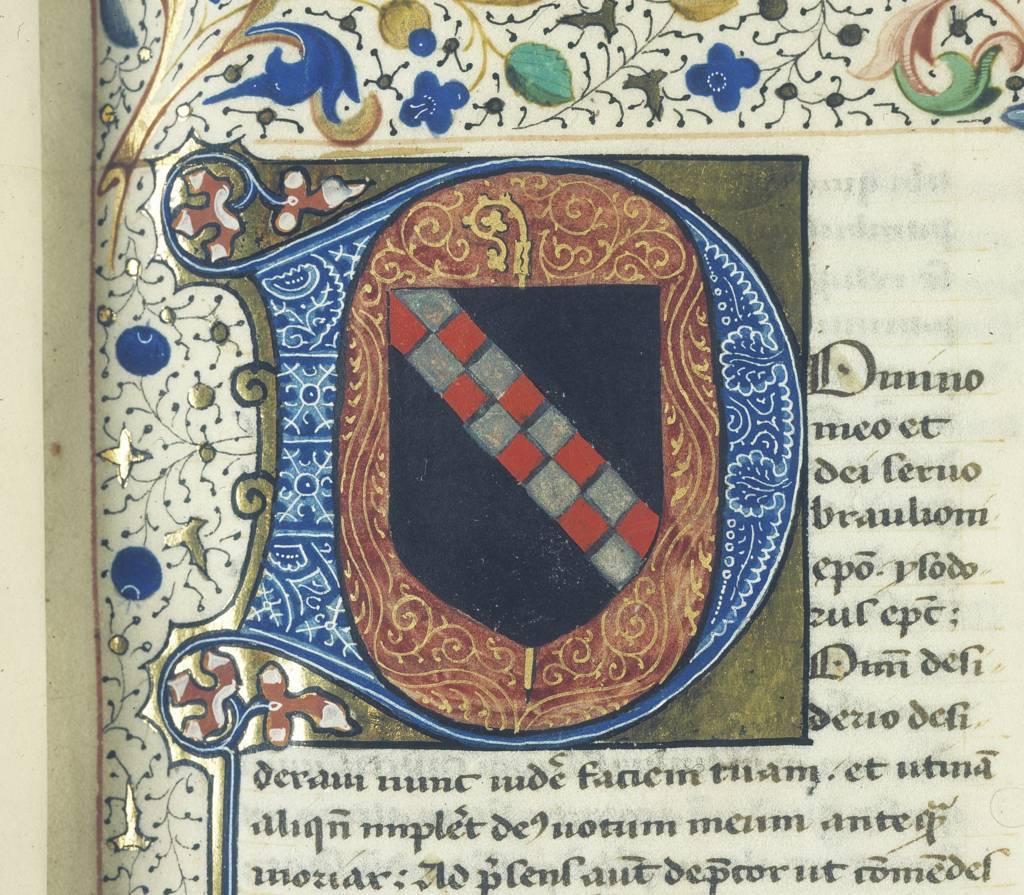 Dnnno
meo et
dei seruo
braulioni
epō. ysido
rus epc̄;
Om̄i desi
derio desi
deraui nunc uidē faciem tuam. et utinā
aliqn̄ implēt de⁹ uotum meum anteq̄
moriar; Ad p̄sens aūt dep̄cor ut cōmēdes